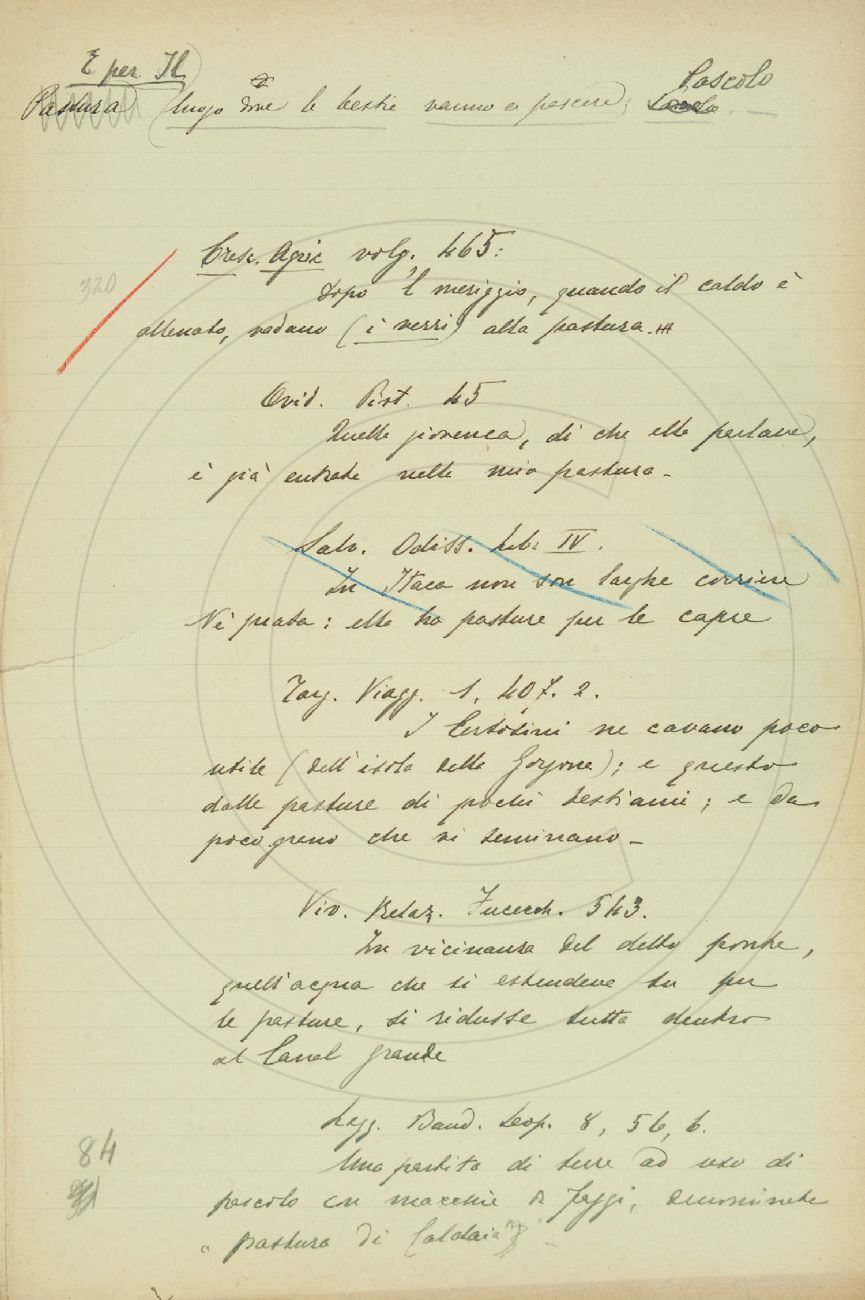 E per Il
Pastura (luogo dove le bestie vanno a pascere; Pascolo
320
Cresc. Agric volg. 465:
Dopo 'l meriggio, quando il caldo è
allenato, vadano (i verri) alla pastura.
Ovid. Pist. 45
Quella giovenca, di che ella parlava,
è già entrata nella mia pastura.
Salv. Odiss. Lib. IV.
In Itaca non son larghe corriere
Nè prata: ella ha pasture per le capre
Targ. Viagg. 1, 407. 2.
I Certosini ne cavano poco
utile (dell'isola della Gorgona); e questo
dalle pasture di pochi bestiami; e da
poco grano che vi seminano_
Viv. Relaz. Fucecch. 543.
In vicinanza del detto ponte,
quell'acqua che si estendeva su per
le pasture, si ridusse tutta dentro
al Canal grande
Legg. Band. Leop. 8, 56, 6.
Una partita di terre ad uso di
pascolo con macchie di faggi, denominata
" pastura di Caldaia "
84